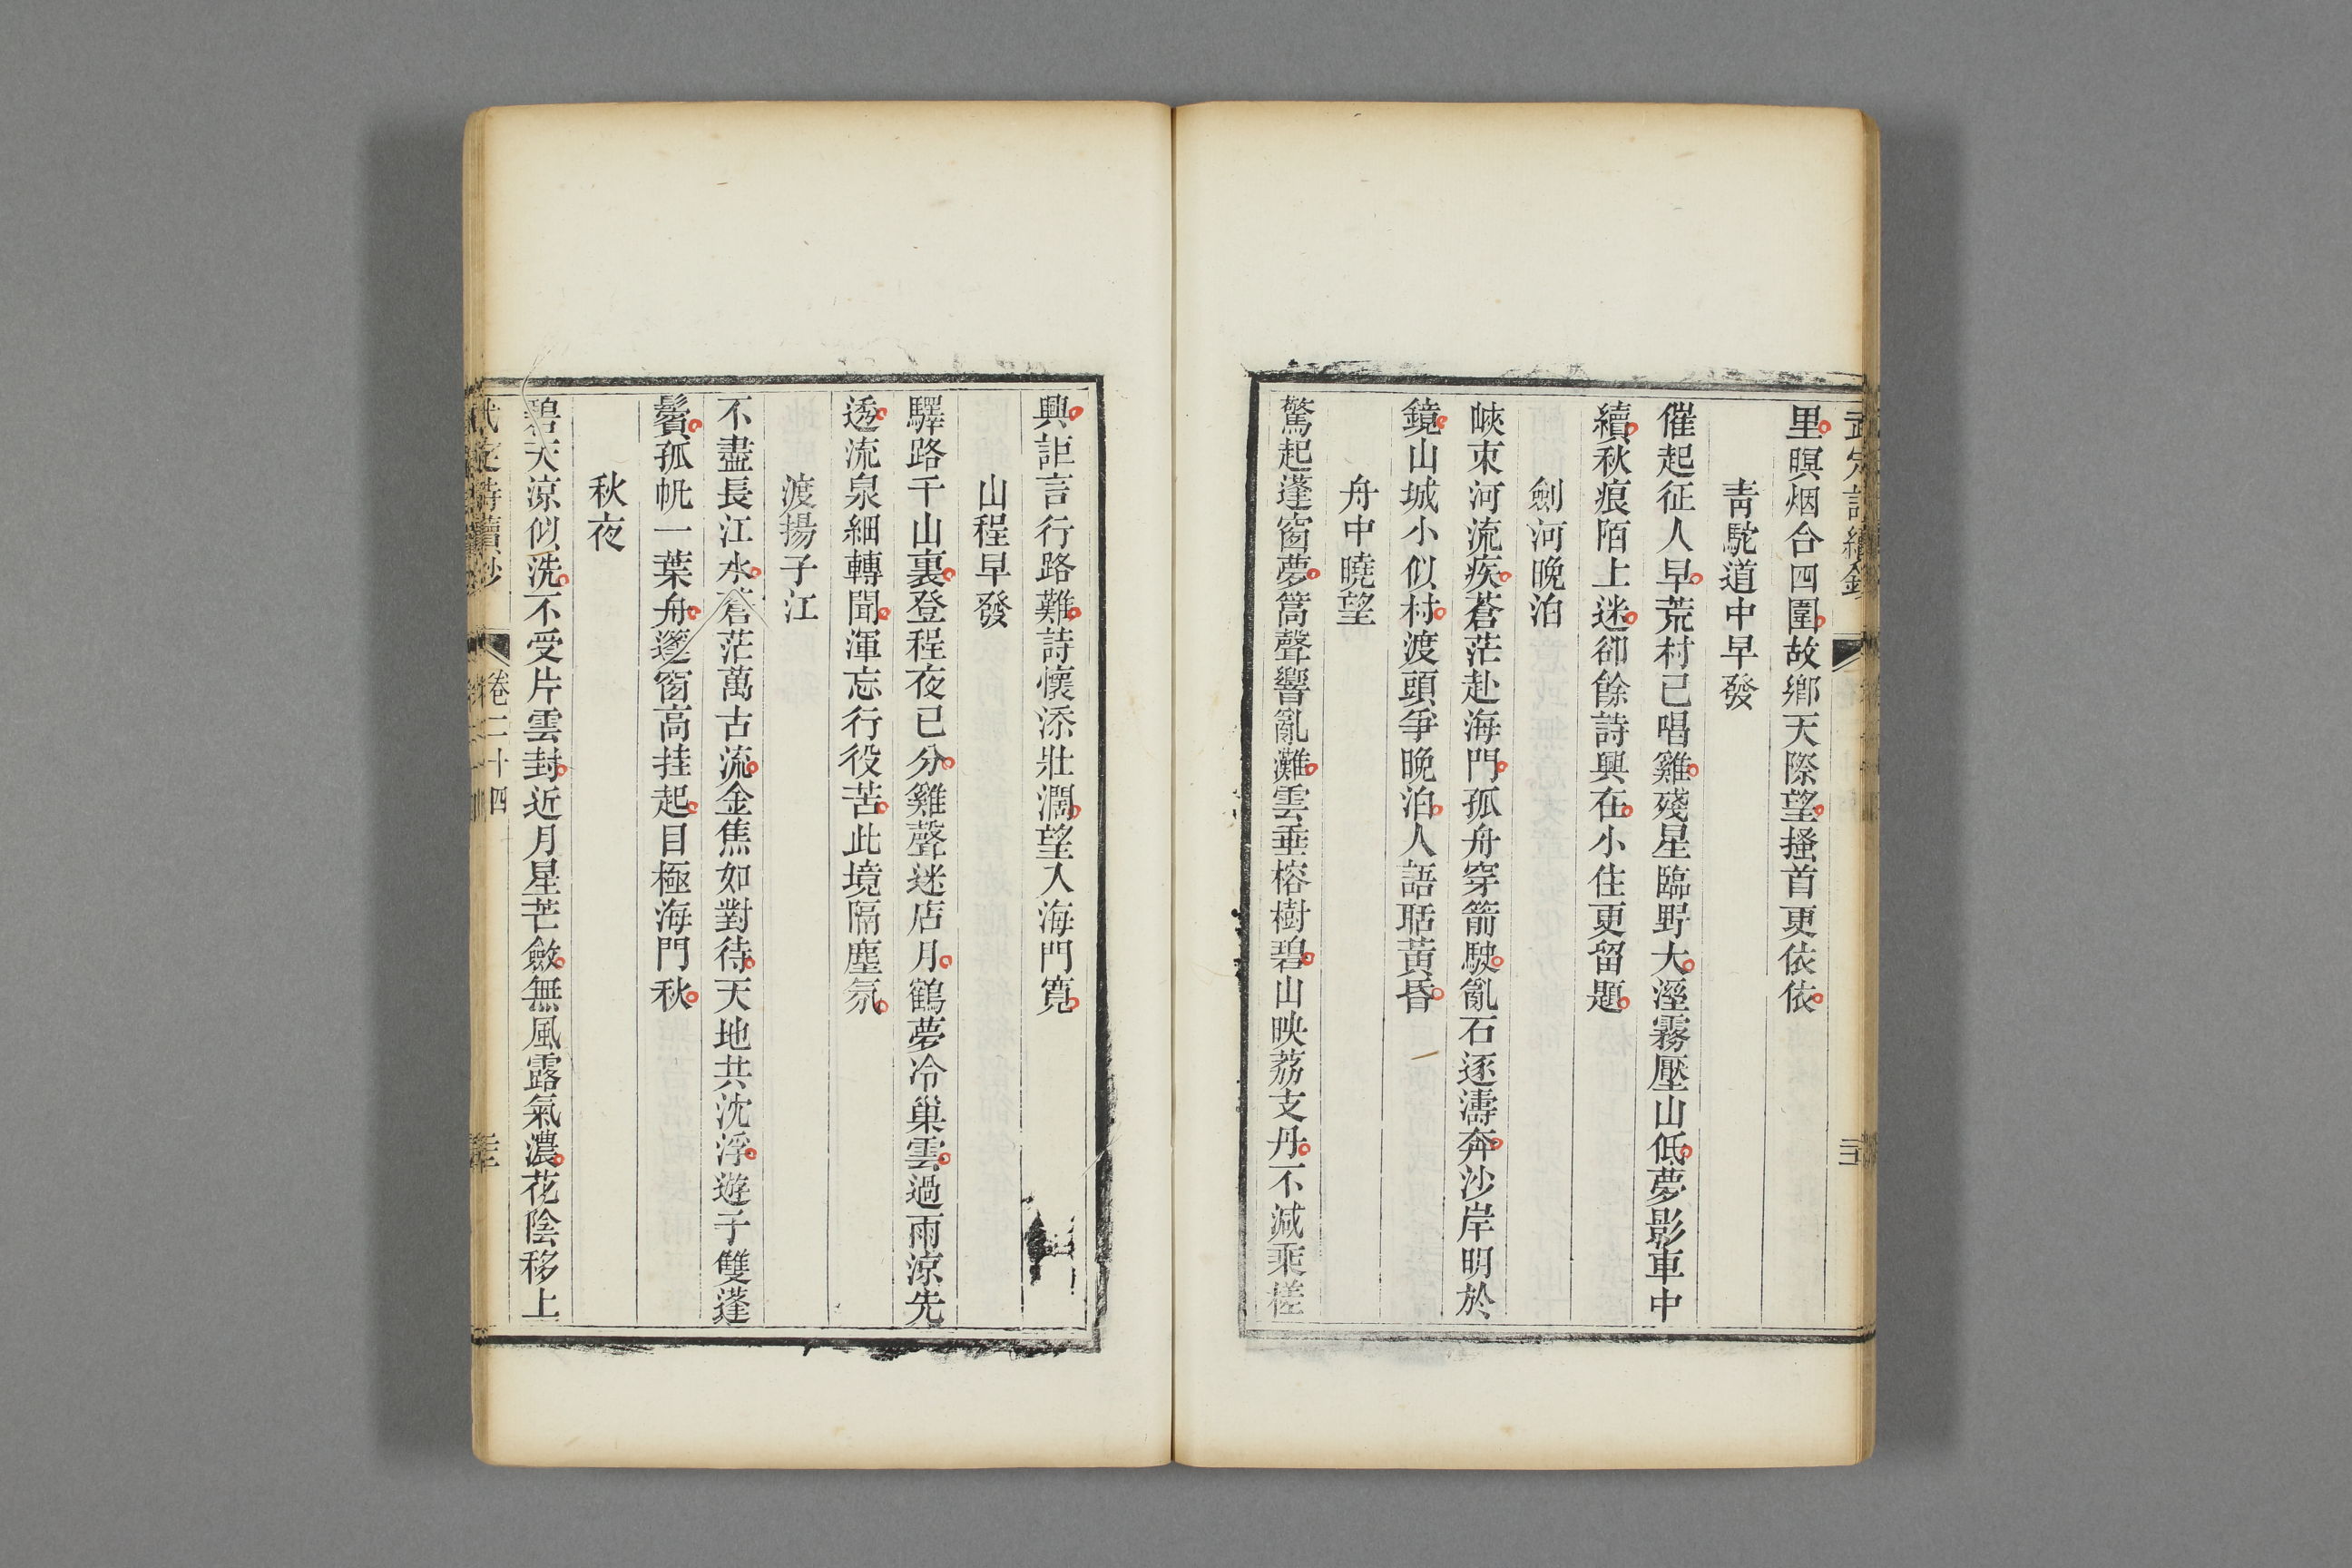 里暝烟合四圍故鄉天際望搔首更依依
青駝道中早發
催起征人早荒村已唱雞殘星臨野大溼霧壓山低夢影車中
續秋痕陌上迷卻餘詩興在小住更留題
劍河晚泊
峽束河流疾蒼茫赴海門孤舟穿箭駛亂石逐濤奔沙岸明於
鏡山城小似村渡頭爭晚泊人語聒黃昏
舟中曉望
驚起蓬窗夢篙聲響亂灘雲垂榕樹碧山映荔支丹不減乘槎
興詎言行路難詩懷添壯濶望入海門寬
山程早發
驛路千山裏登程夜已分雞聲迷店月鶴夢冷巢雲過雨涼先
透流泉細轉聞渾忘行役苦此境隔塵氛
渡揚子江
不盡長江水蒼茫萬古流金焦如對待天地共沈浮遊子雙蓬
鬢孤帆一葉舟篷窗高挂起目極海門秋
秋夜
碧天涼似洗不受片雲封近月星芒斂無風露氣濃花陰移上
卷二十四